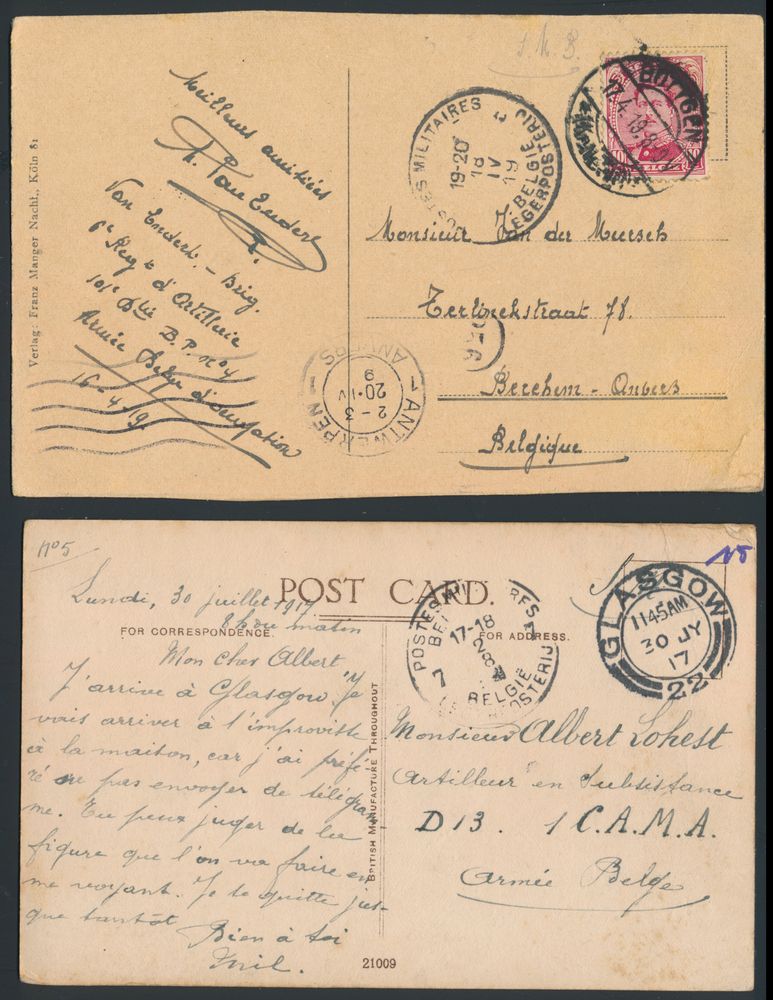 S.M.B.
Meilleurs amitiées
Van Endert. - Brig.
6e Reg t d'Artillerie
101e Btie B.P. no 4
Armée Belge d'occupation
16-4-19.
Verlag: Franz Manger Nachf., Köln 81
POSTES MILITAIRES
19-20
18
IV
19
BELGIE
LEGERPOSTERIJ
BÜTTGEN
17.4.19.8
Monsieur Van der Meersch
Terlinckstraat 78.
Berchem - Anvers
Belgique
ANTWERPEN - 1
ANVERS
2-3
20·IV
9
No 5
Lundi, 30 juillet 1917
POST CARD.
FOR CORRESPONDENCE.
FOR ADDRESS.
Mon cher Albert
J'arrive à Glasgow. Je
vais arriver à l'improviste
à la maison, car j'ai préfé-
ré ne pas envoyer de télégram-
me. Tu peux juger de la
figure que l'on va faire en
me voyant. Je te quitte jus-
que tantôt
Bien à toi
Emil.
BRITISH MANUFACTURE THROUGHOUT
21009
POSTES MILITAIRES
17-18
BELGIE
7
GLASGOW
1145AM
30 JY
17
22
15
Monsieur Albert Lohest
Artilleur en Subsistance
D13. 1 C.A.M.A.
Armée Belge